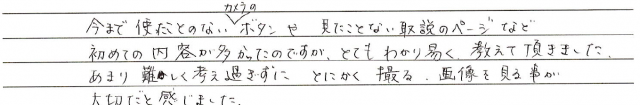 カメラの
今まで使たことのないボタンや 見たことない取説のページなど
初めての内容が多かったのですが、とてもわかり易く 教えて頂きました。
あまり難しく考え過ぎずに とにかく 撮る、画像を見る事が
大切だと感じました。